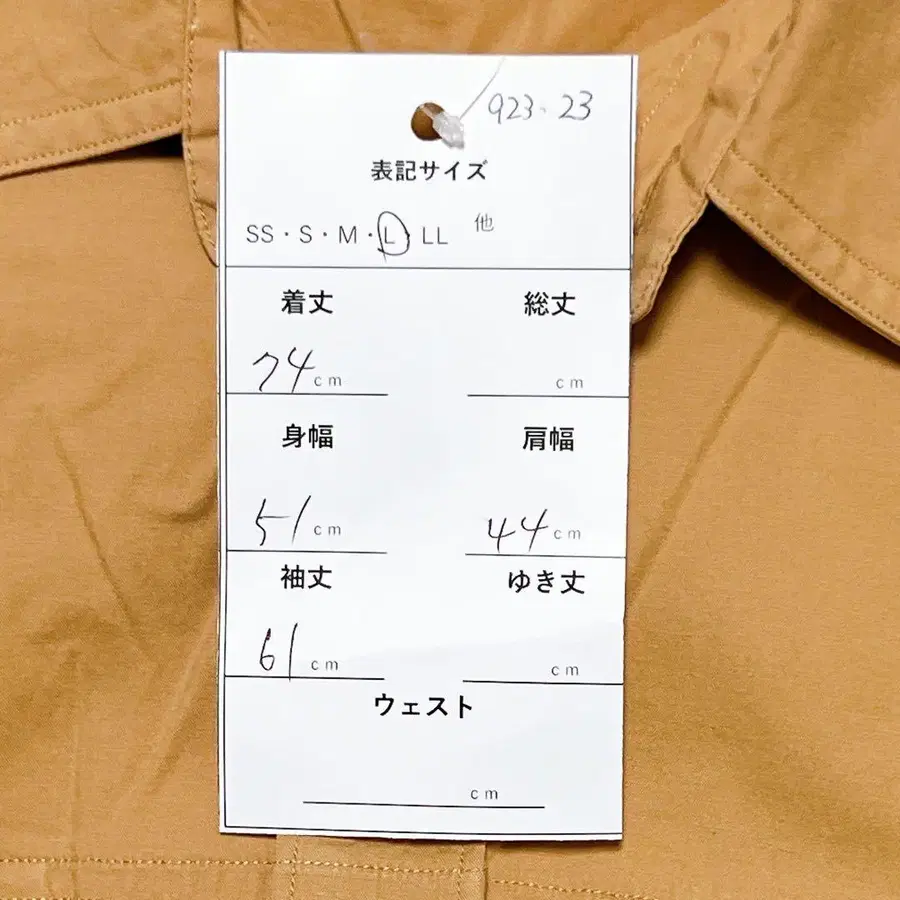 923-23
表記サイズ
SS・S・M・L LL 他
着丈 総丈
74cm cm
身幅 肩幅
51cm 44cm
袖丈 ゆき丈
61cm cm
ウェスト
cm